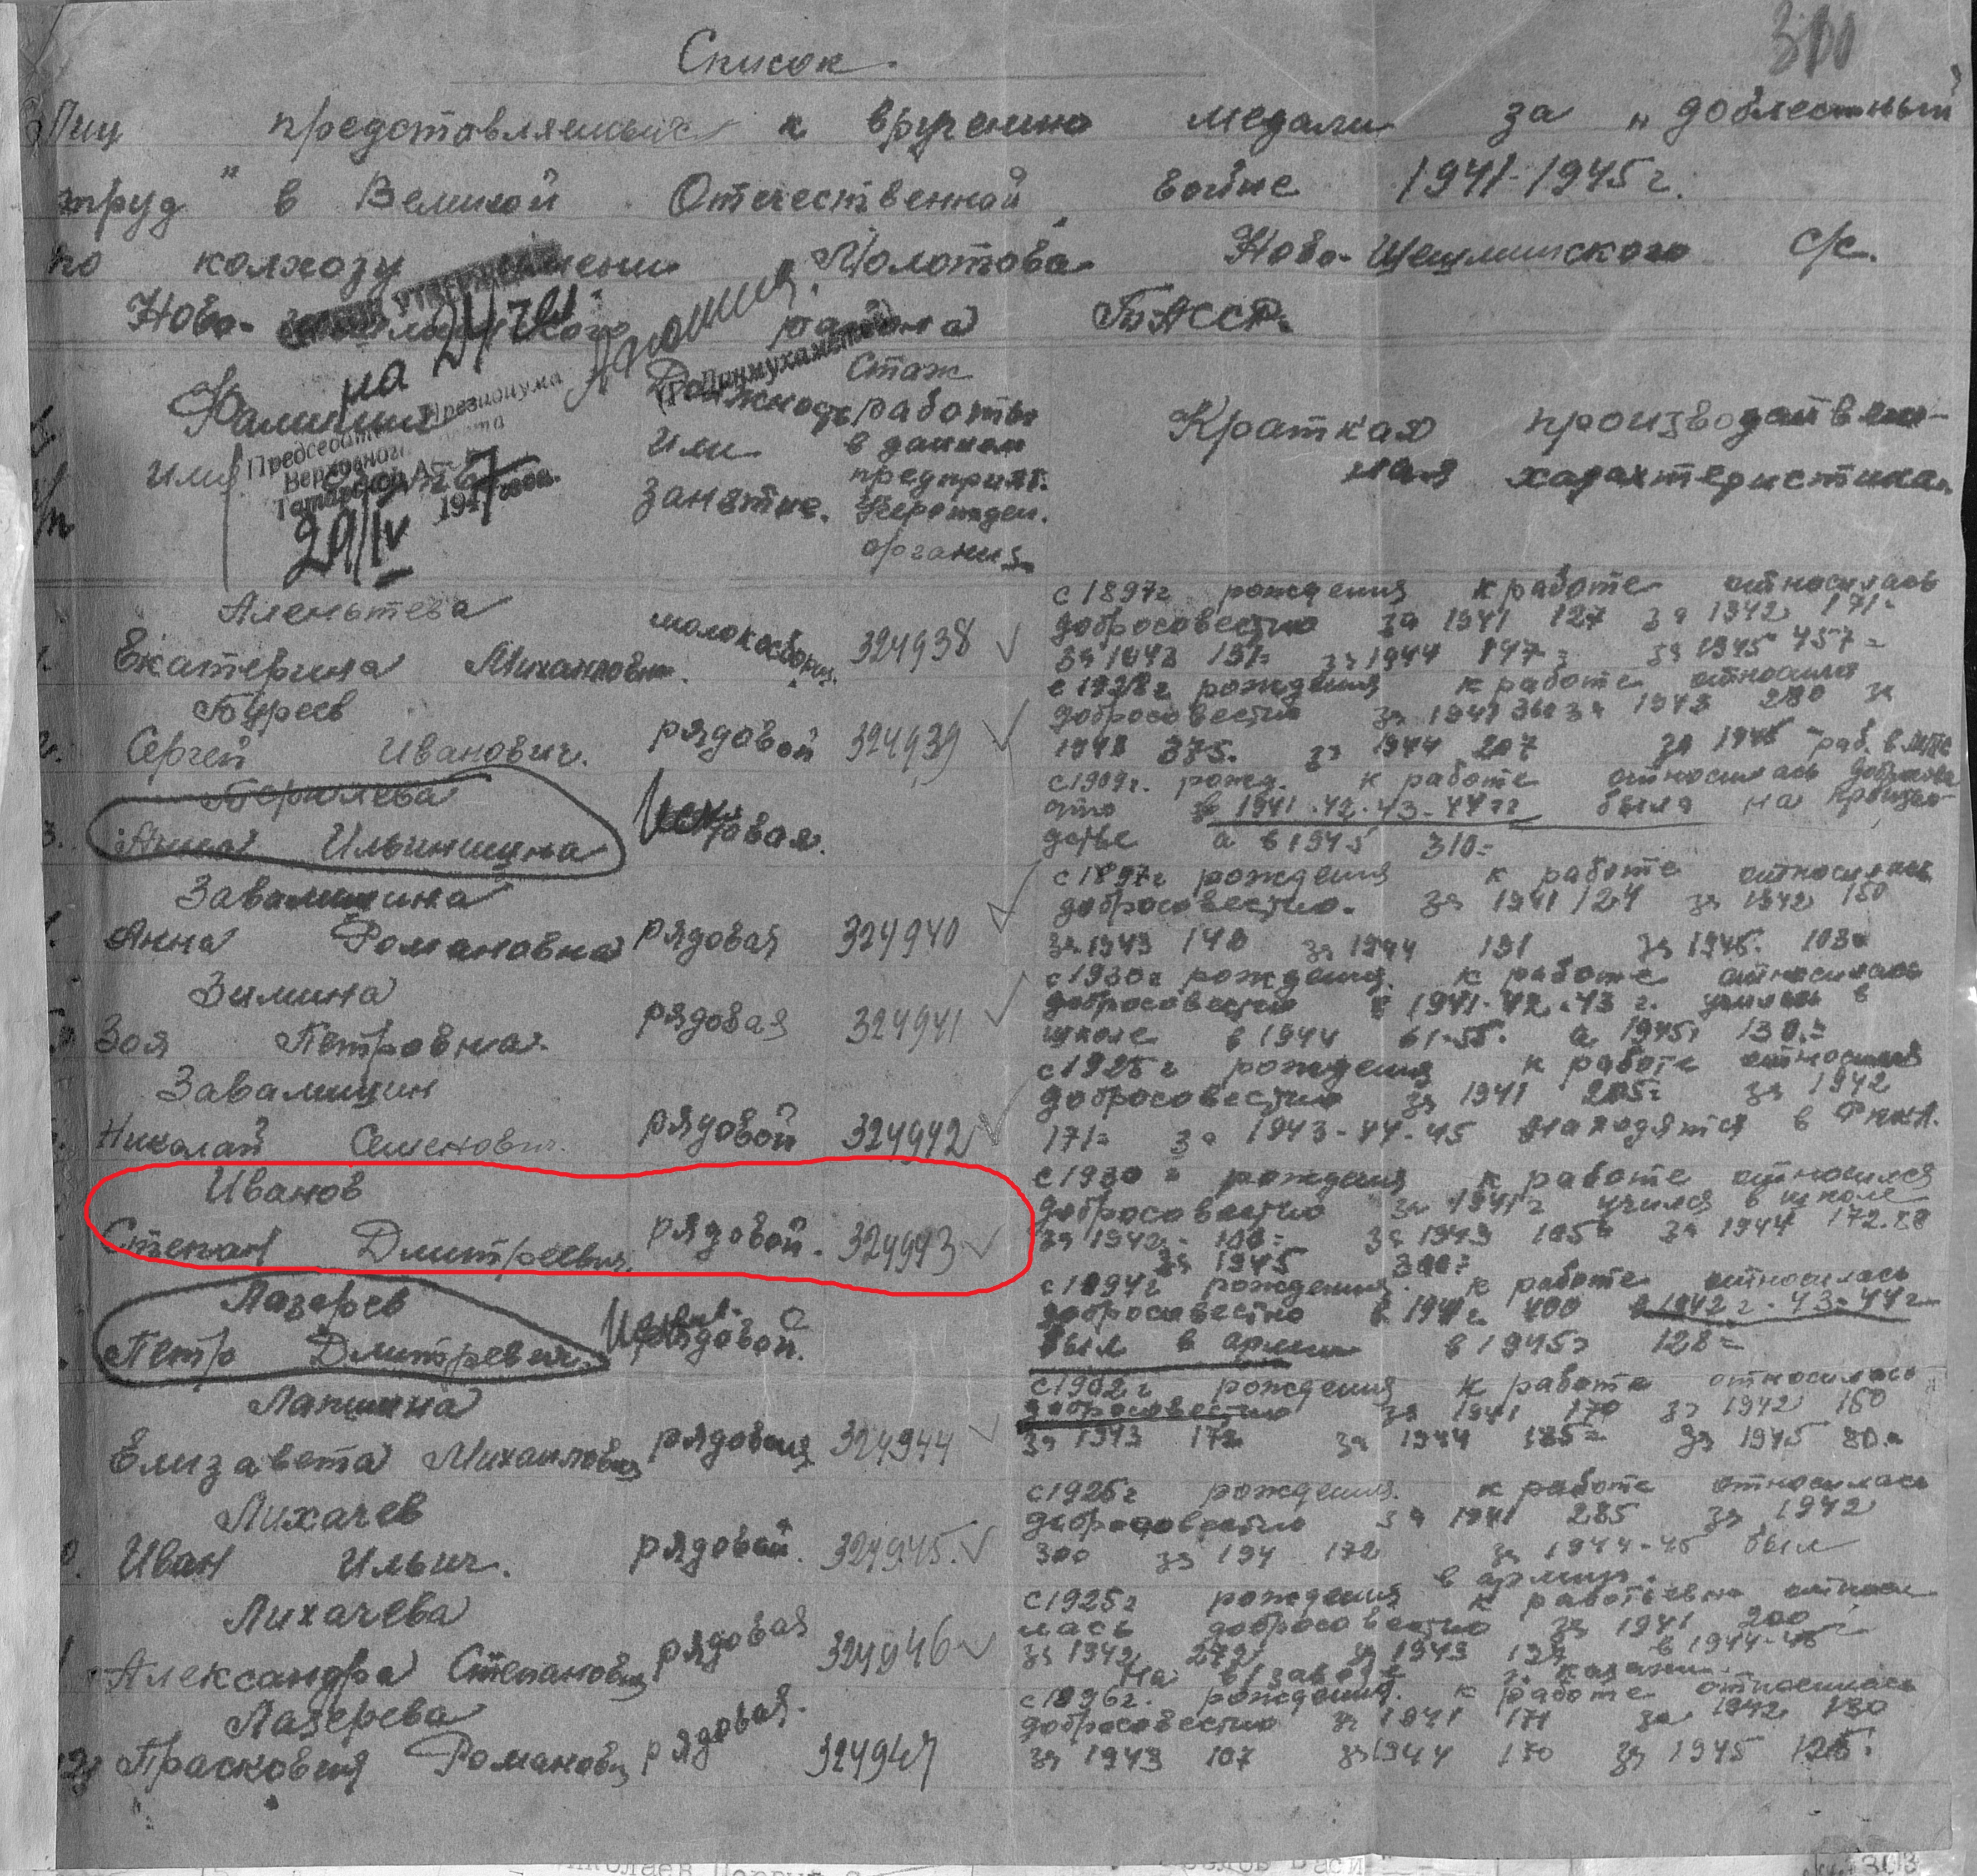 Список.
310
Лиц представляемых к вручению медали за „доблестный
труд" в Великой Отечественной войне 1941-1945 г.
по колхозу имени Молотова Ново-Шешминского с/с.
Ново- района ТАССР.
на 21/
Фамилия
имя
Председатель Президиума
Верховного Совета
Татарской АССР
1947 года.
29/IV
Должность
или
занятие.
Стаж
работы
в данном
предприят.
учрежден.
организ.
Краткая производствен-
ная характеристика.
Аленьтева
Екатерина Михайловн. молокосборщ. 324938 ✓
с 1897г рождения к работе относилась
добросовестно за 1941 127 за 1942 171-
за 1943 131= за 1944 147= за 1945 457=
Буреев
Сергей Иванович. рядовой 324939 ✓
с 1928г рождения к работе относился
добросовестно за 1941 за 1943 280 за
1943 375. за 1944 207 за 1945 раб. в МТС
Анна Ильинишна рядовая.
с 1909г. рожд. к работе относилась добросове
стно в 1941-42-43-44гг была на производ
а в 1945 310=
Завалишина
4. Анна Романовна рядовая 324940 ✓
с 1897г рождения к работе относилась
добросовестно. за 1941 124 за 1942 150
за 1943 140 за 1944 131 за 1945. 103=
Зимина
Зоя Петровна. рядовая 324941 ✓
с 1930г рождения. к работе относилась
добросовестно в 1941-42-43 г. училась в
школе в 1944 61-55. а 1945г 130.=
Завалишин
Николай Семенович. рядовой 324942 ✓
с 1925г рождения к работе относился
добросовестно за 1941 205= за 1942
171= за 1943-44-45 находятся в РККА.
Иванов
Степан Дмитреевич. рядовой. 324943 ✓
с 1930 г рождения к работе относился
добросовестно за 1941г учился в школе
за 1942г- 100= за 1943 105= за 1944 172.80
за 1945 300=
Лазерев
Петр Дмитревич. рядовой.
с 1894г рождения. к работе относилась
добросовестно в 1941г. 400 в 1942г.-43-44г-
был в армии в 1945г 128=
Лапшина
Елизавета Михаиловна рядовая 324944 ✓
с 1902г рождения к работе относилась
добросовестно за 1941 170 за 1942 150
за 1943 172 за 1944 185= за 1945 80.=
Лихачев
Иван Ильич. рядовой. 324945. ✓
с 1925г рождения. к работе относилась
добросовестно за 1941 285 за 1942
300 за 194 172 за 1944-45 был
в армии.
Лихачева
Александра Степановна рядовая 324946 ✓
с 1925г рождения к работе она относи
лась добросовестно за 1941 200
за 1942 272 за 1943 в 1944-45
на в/заводе г. Казани.
Лазерева
12. Прасковия Романовна рядовая. 324947
с 1896г. рождения. к работе относилась
добросовестно за 1941 171 за 1942 130
за 1943 107 за 1944 170 за 1945 125.
313